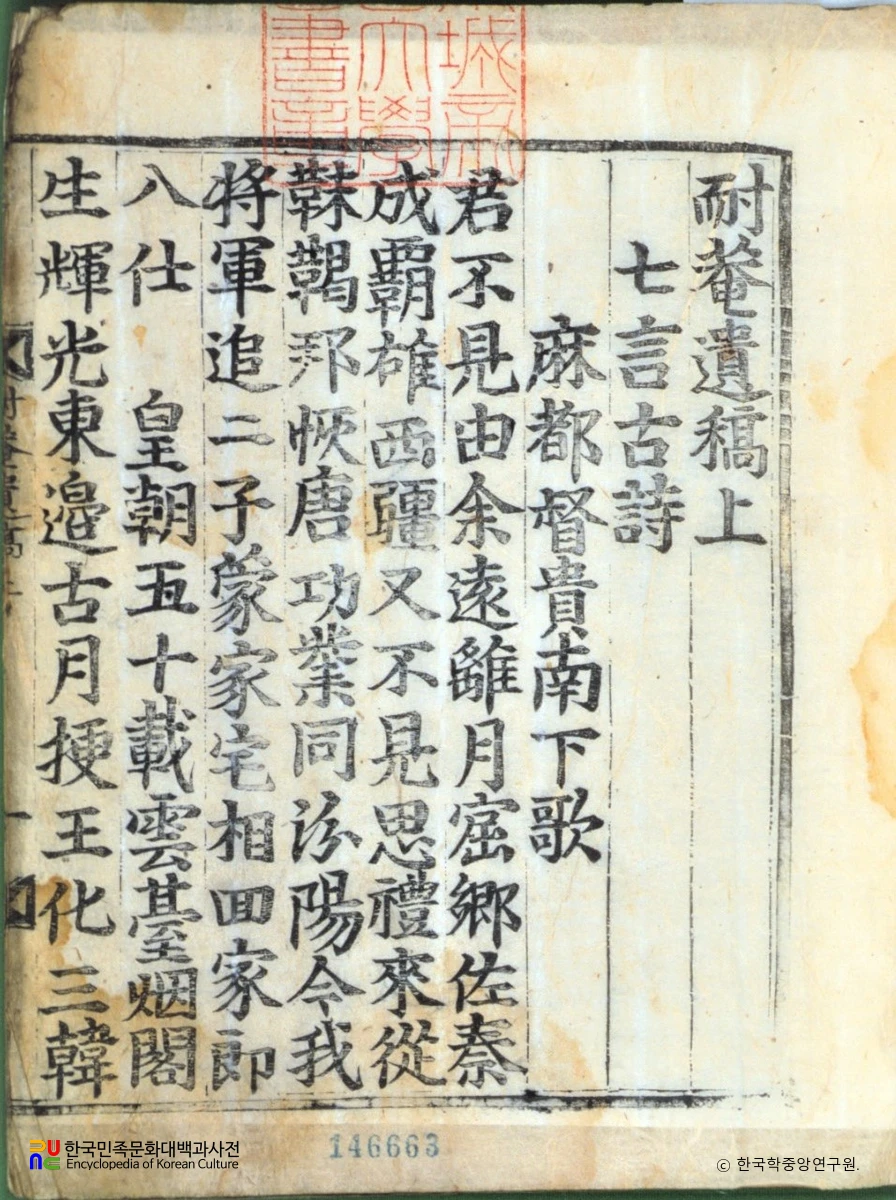 城帝
大學
書章
耐菴遺稿上
七言古詩
麻都督貴南下歌
君不見由余遠離月窟鄉佐秦
成覇雄西疆又不見思禮來從
靺鞨邦恢唐功業同汾陽今我
將軍追二子蒙家宅相回家郎
八仕 皇朝五十載雲臺烟閣
生輝光東邊古月挭王化三韓
146663
한국민족문화대백과사전
Encyclopedia of Korean Culture
© 한국학중앙연구원.